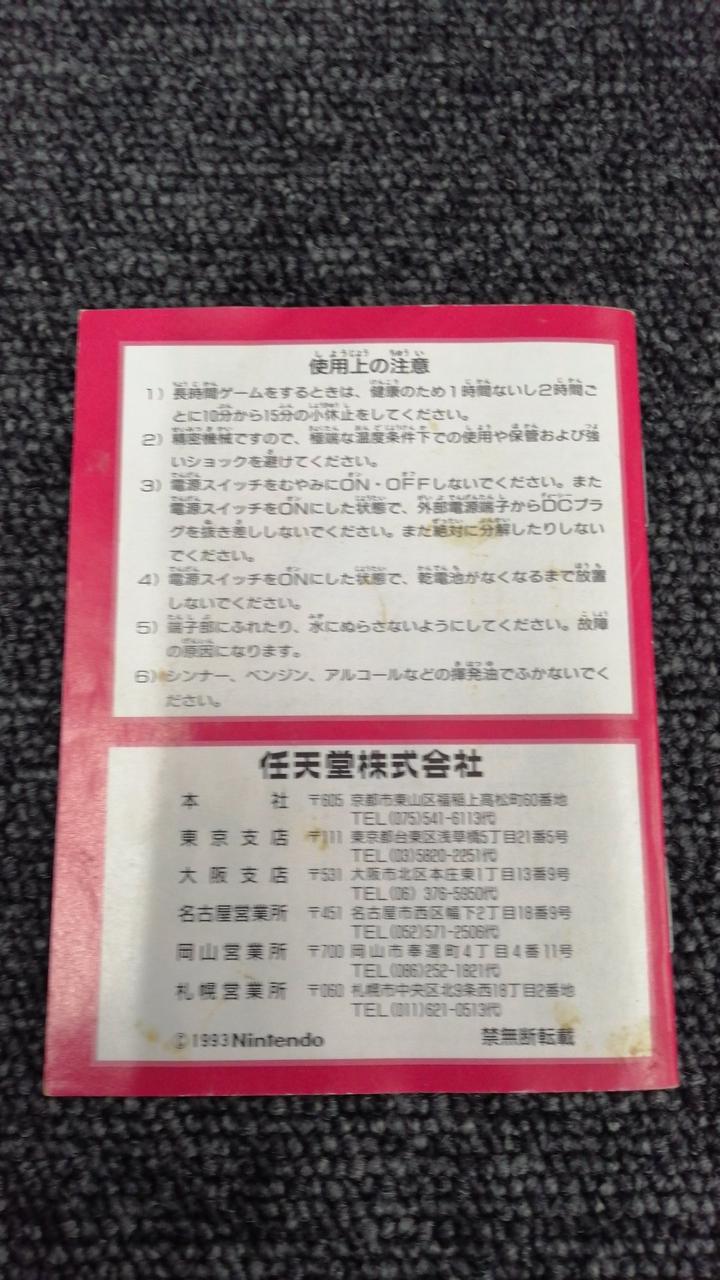 使用上の注意
1）長時間ゲームをするときは、健康のため1時間ないし2時間ご
とに10分から15分の小休止をしてください。
2）精密機械ですので、極端な温度条件下での使用や保管および強
いショックを避けてください。
3）電源スイッチをむやみにON・OFFしないでください。また
電源スイッチをONにした状態で、外部電源端子からDCプラ
グを抜き差ししないでください。また絶対に分解したりしない
でください。
4）電源スイッチをONにした状態で、乾電池がなくなるまで放置
しないでください。
5）端子部にふれたり、水にぬらさないようにしてください。故障
の原因になります。
6）シンナー、ベンジン、アルコールなどの揮発油でふかないでく
ださい。
任天堂株式会社
本社 〒605 京都市東山区福稲上高松町60番地
TEL(075)541-6113代
東京支店 〒111 東京都台東区浅草橋5丁目21番5号
TEL(03)5820-2251代
大阪支店 〒531 大阪市北区本庄東1丁目13番9号
TEL(06) 376-5950代
名古屋営業所 〒451 名古屋市西区幅下2丁目18番9号
TEL(052)571-2506代
岡山営業所 〒700 岡山市奉還町4丁目4番11号
TEL(086)252-1821代
札幌営業所 〒060 札幌市中央区北9条西18丁目2番地
TEL(011)621-0513代
©1993 Nintendo 禁無断転載